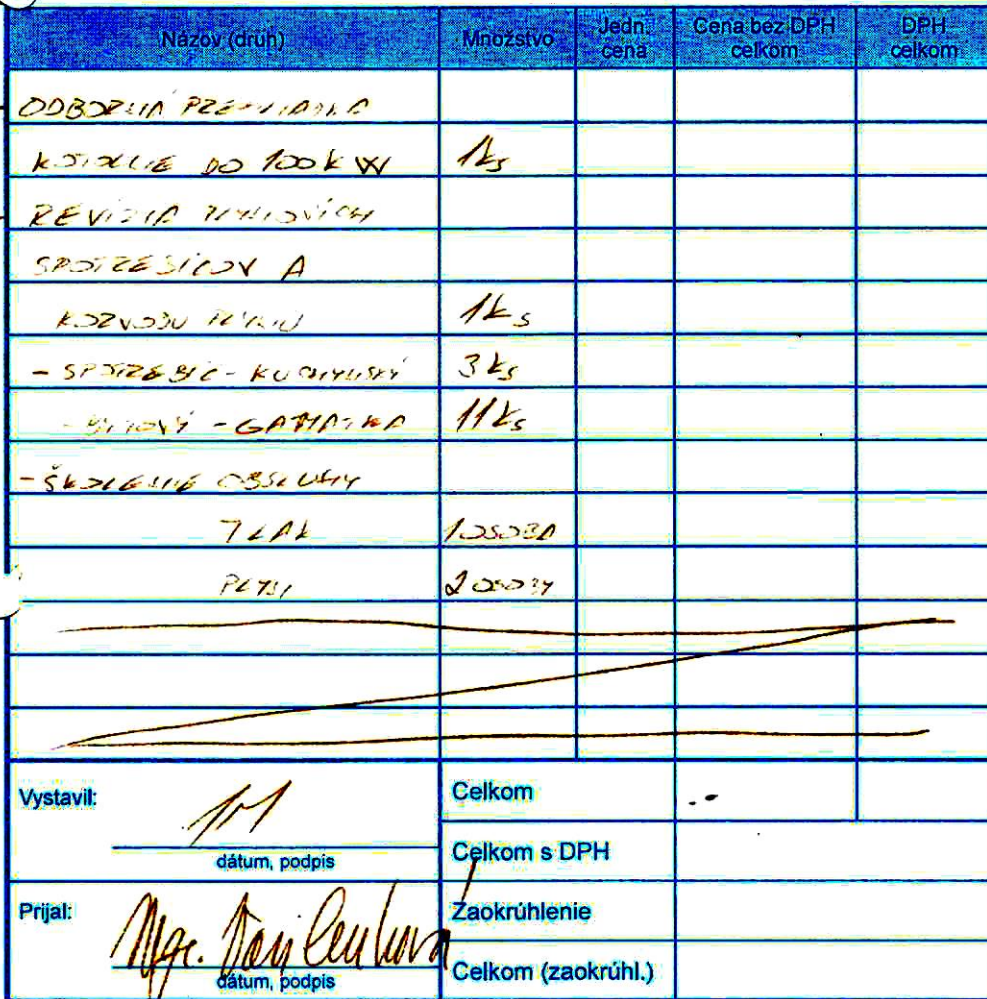 Názov (druh) Množstvo Jedn. cena Cena bez DPH celkom DPH celkom
ODBORNÁ PREHLIADKA
KOTOLNE DO 100 kW 1ks
REVÍZIA PLYNOVÝCH
SPOTREBIČOV A
ROZVODU PLYNU 1ks
- SPOTREBIČ - KUCHYNSKÝ 3ks
- BYTOVÝ - GAMATKA 11ks
- ŠKOLENIE OBSLUHY
TLAK 1 OSOBA
PLYN 2 OSOBY
Vystavil:
dátum, podpis
Celkom
Celkom s DPH
Prijal: Mgr.
dátum, podpis
Zaokrúhlenie
Celkom (zaokrúhl.)